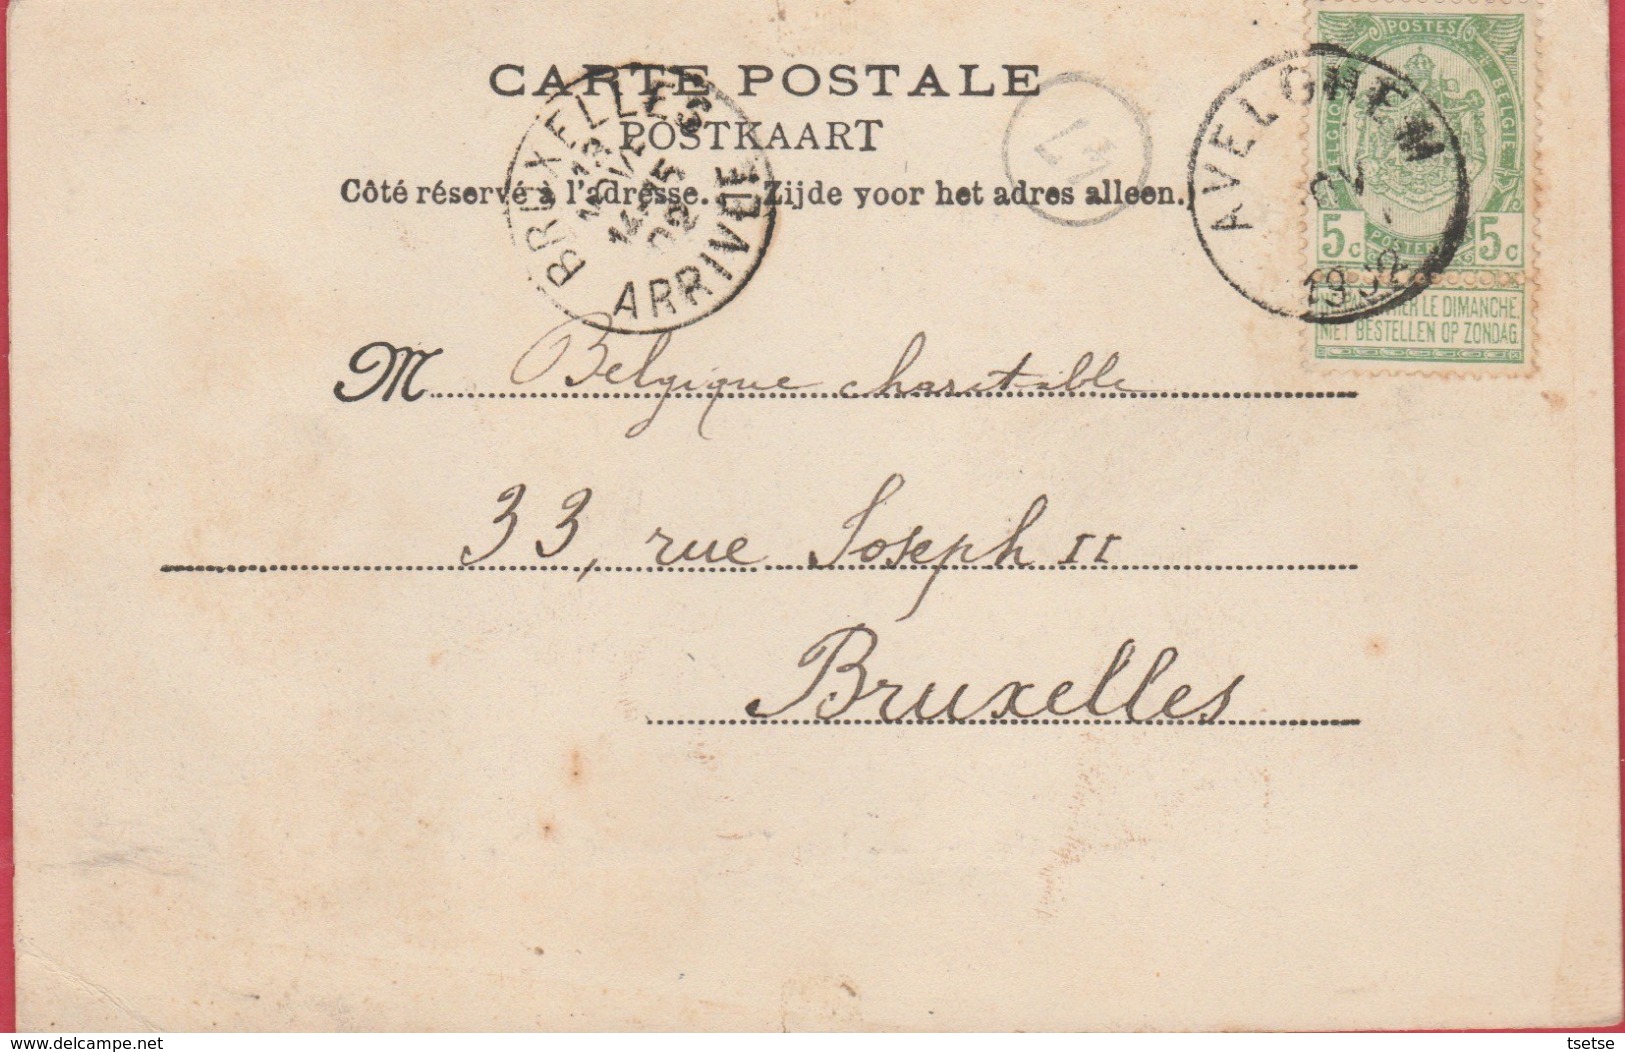 POSTES
BELGIQUE
BELGIË
CARTE POSTALE
POSTKAART
Côté réservé à l'adresse. Zijde voor het adres alleen.
BRUXELLES
ARRIVÉE
AVELGHEM
5c
5c
LE DIMANCHE.
NIET BESTELLEN OP ZONDAG.
M Belgique charitable
33, rue Joseph II
Bruxelles
delcampe.net
tsetse